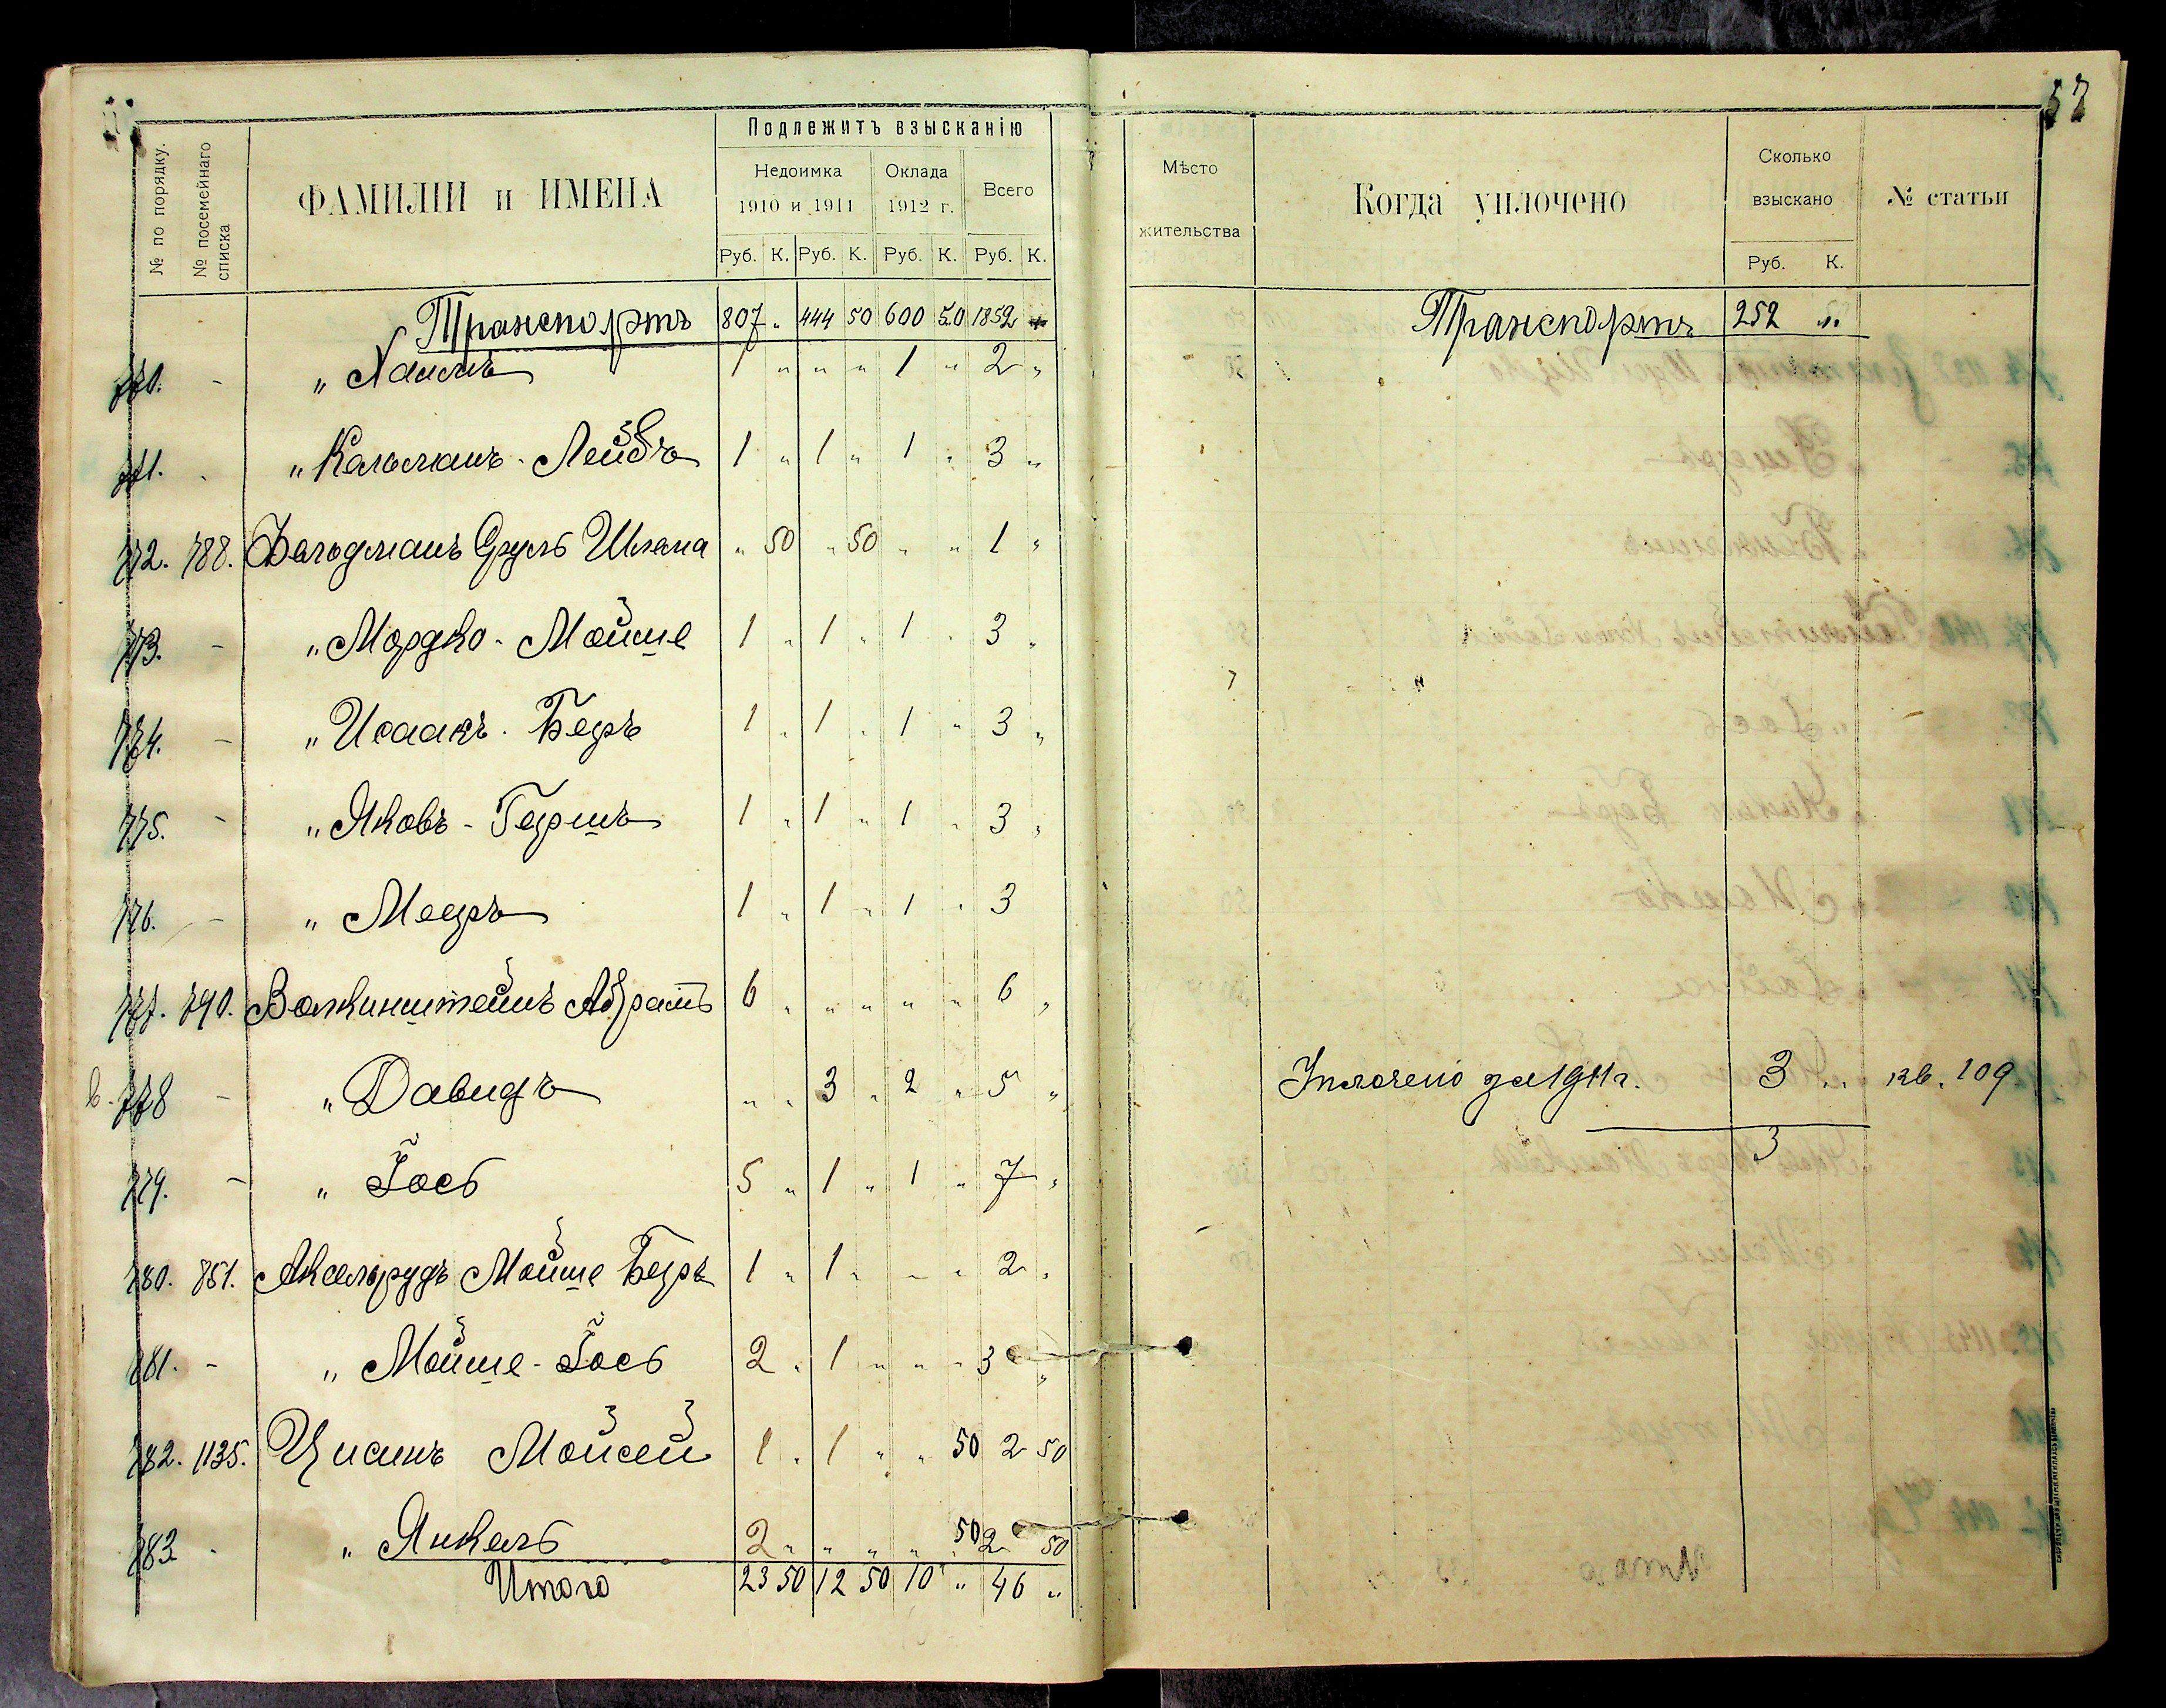 57
Подлежитъ взысканію
№ по порядку.
№ посемейнаго списка
ФАМИЛІИ и ИМЕНА
Недоимка
1910 и 1911
Оклада
1912 г.
Всего
Руб. К. Руб. К. Руб. К. Руб. К.
Мѣсто
жительства
Когда уплочено
Сколько
взыскано
Руб. К.
№ статьи
Транспортъ 807 „ 444 50 600 50 1852 „
Транспортъ 252 „
770. - „ Хаимъ 1 „ „ „ 1 „ 2 „
771. - „ Кальманъ - Лейбъ 1 „ 1 „ 1 „ 3 „
772. 788. Вальдманъ Сруль Шлема „ 50 „ 50 „ „ 1 „
773. - „ Мордко - Мойше 1 „ 1 „ 1 „ 3 „
774. - „ Исаакъ - Беръ 1 „ 1 „ 1 „ 3 „
775. - „ Яковъ - Гершъ 1 „ 1 „ 1 „ 3 „
776. - „ Мееръ 1 „ 1 „ 1 „ 3
777. 790. Волкинштейнъ Абрамъ 6 „ „ „ „ „ 6 „
778 - „ Давидъ „ „ 3 „ 2 „ 5 „
Уплочено за 1911 г. 3 „ кв. 109
3
779. - „ Іось 5 „ 1 „ 1 „ 7 „
780. 751. Аксельрудъ Мойше Беръ 1 „ 1 „ „ „ 2 „
781. - „ Мойше - Іось 2 „ 1 „ „ „ 3 „
782. 1135. Цисинъ Мойсей 1 „ 1 „ „ 50 2 50
783 - „ Янкель 2 „ „ „ „ 50 2 50
Итого 23 50 12 50 10 „ 46 „